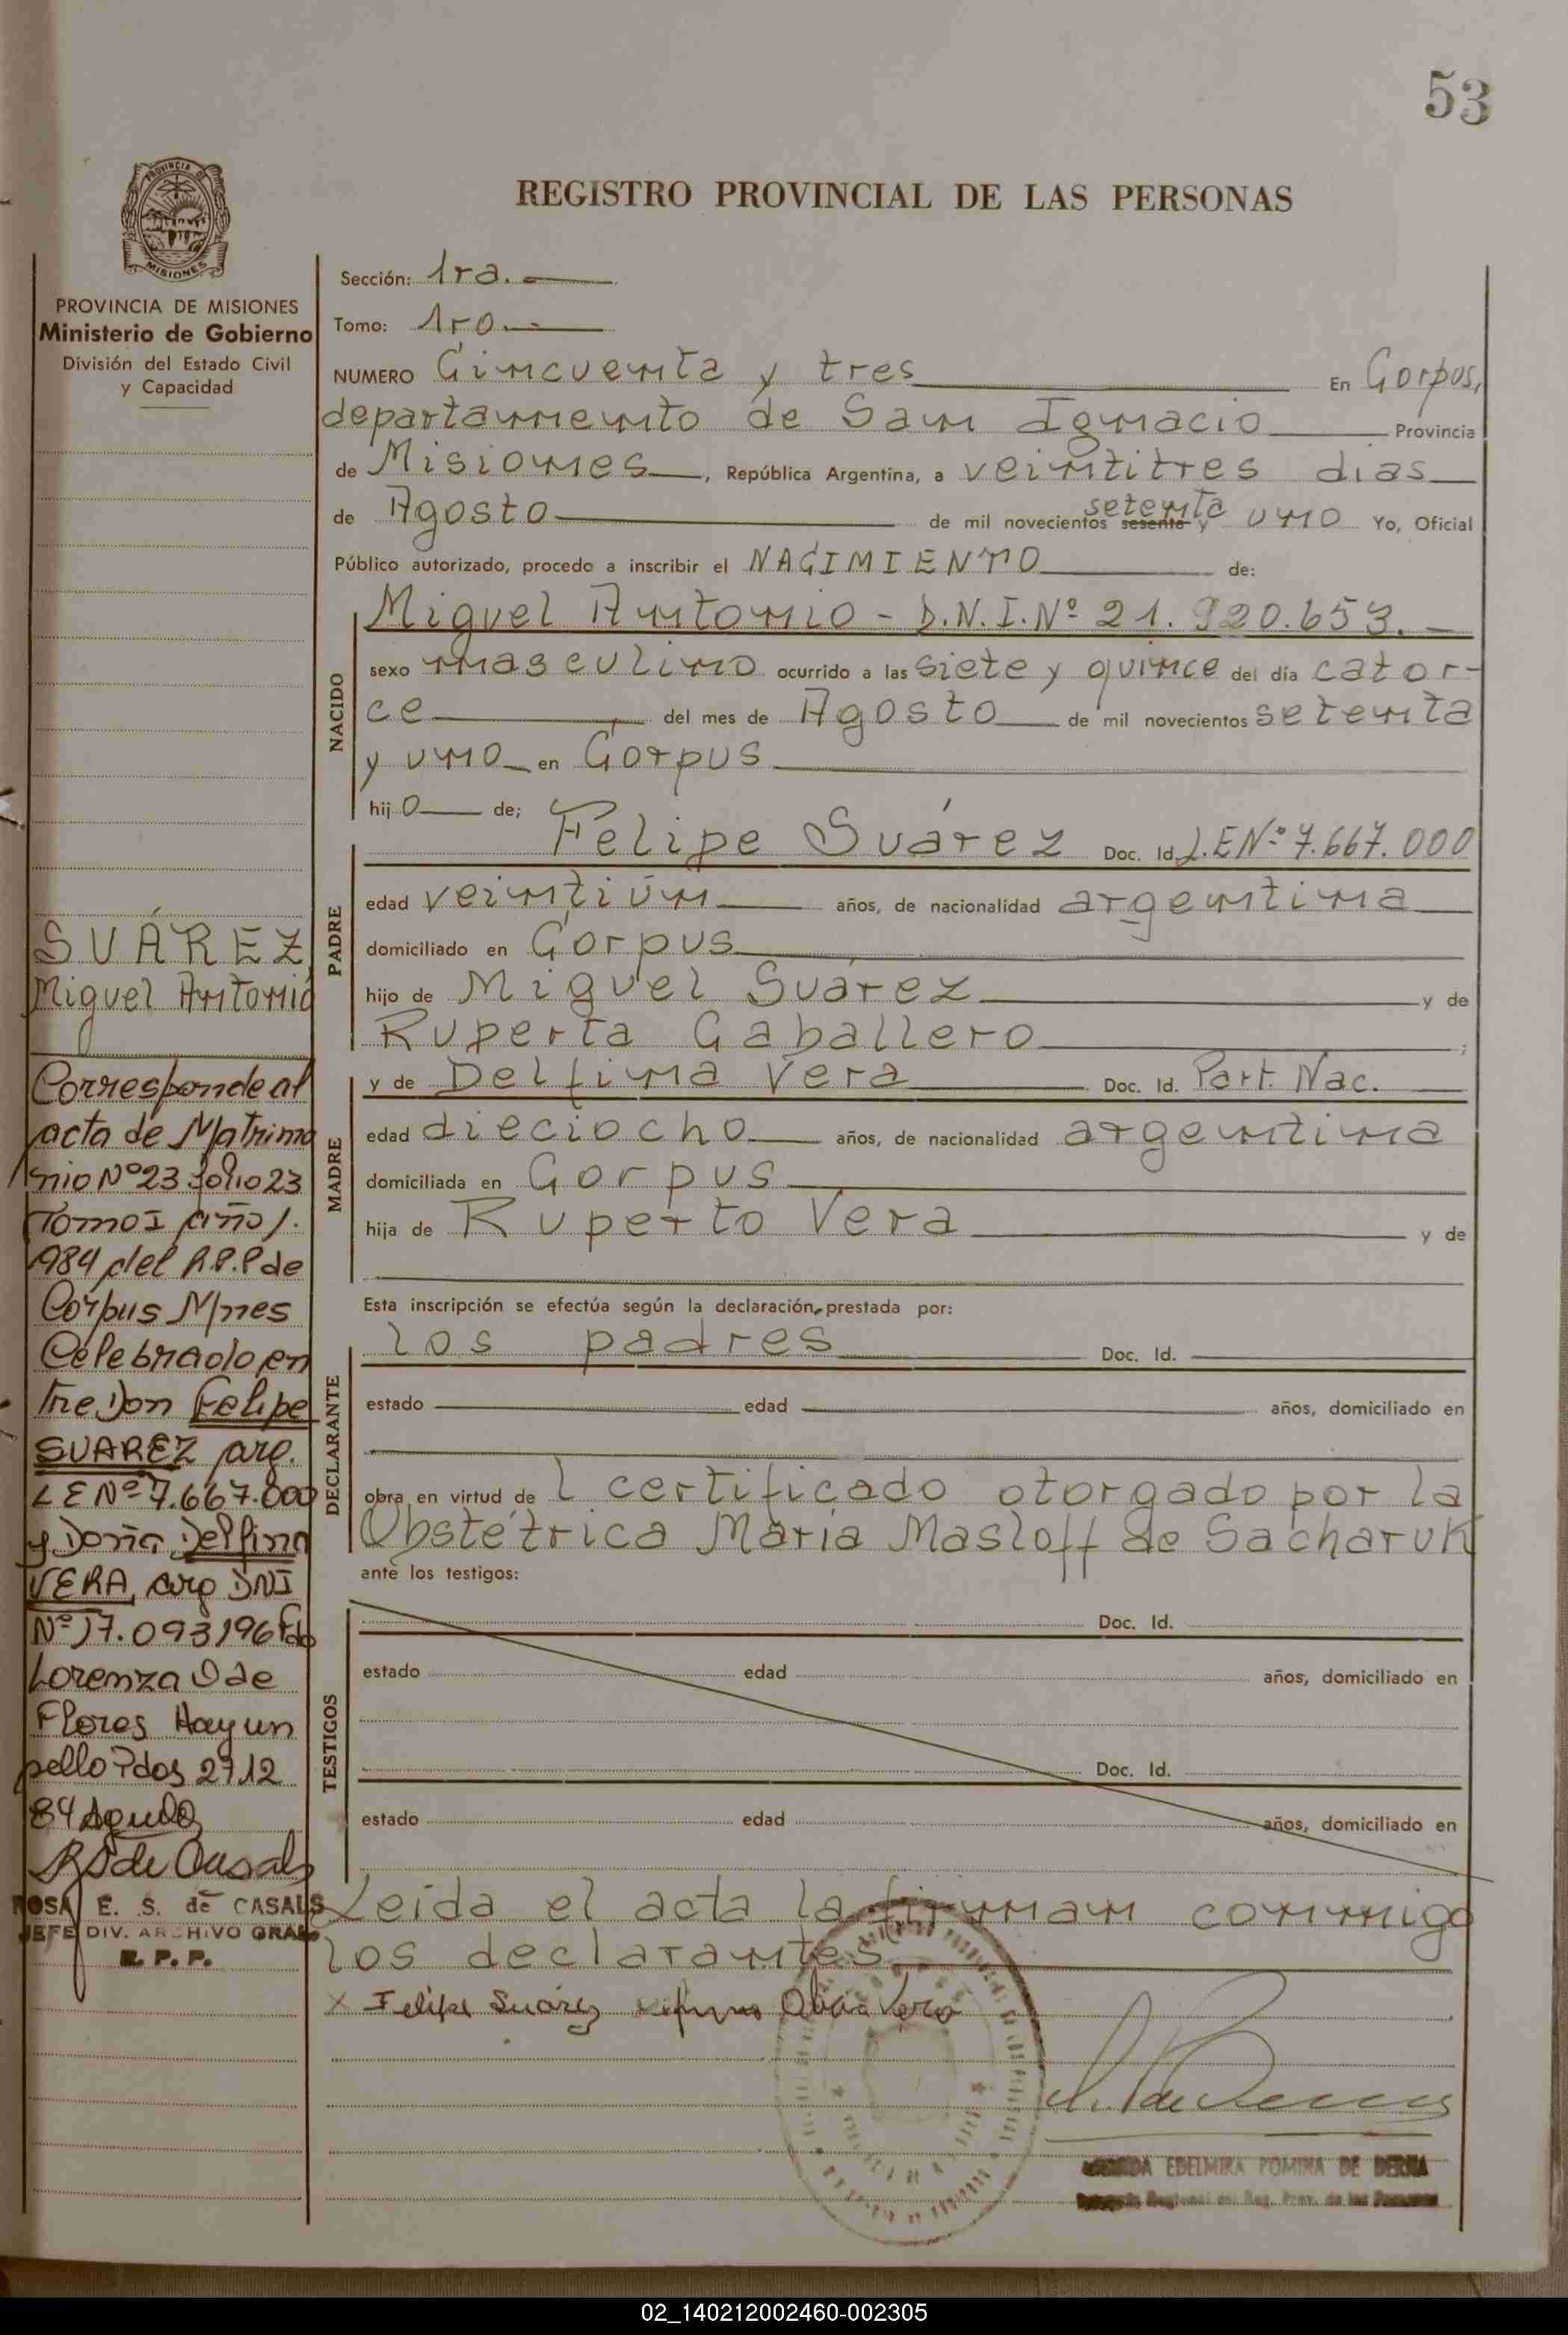 53
REGISTRO PROVINCIAL DE LAS PERSONAS
PROVINCIA DE
MISIONES
PROVINCIA DE MISIONES
Ministerio de Gobierno
División del Estado Civil
y Capacidad
Sección: 1ra.
Tomo: 1ro.
NUMERO Cincuenta y tres En Corpus,
departamento de San Ignacio Provincia
de Misiones, República Argentina, a veintitres dias
de Agosto de mil novecientos sesenta y setenta uno Yo, Oficial
Público autorizado, procedo a inscribir el NACIMIENTO de:
NACIDO
Miguel Antonio - D.N.I.Nº 21.920.653.-
sexo masculino ocurrido a las siete y quince del día cator-
ce del mes de Agosto de mil novecientos setenta
y uno en Corpus
hijo de;
PADRE
Felipe Suárez Doc. Id. L.ENº 7.667.000
edad veintiún años, de nacionalidad argentina
domiciliado en Corpus
hijo de Miguel Suárez y de
Ruperta Caballero ;
MADRE
y de Delfina Vera Doc. Id. Part. Nac.
edad dieciocho años, de nacionalidad argentina
domiciliada en Corpus
hija de Ruperto Vera y de
Esta inscripción se efectúa según la declaración prestada por:
DECLARANTE
los padres Doc. Id.
estado edad años, domiciliado en
obra en virtud del certificado otorgado por la
Obstétrica María Masloff de Sacharuk
ante los testigos:
TESTIGOS
Doc. Id.
estado edad años, domiciliado en
Doc. Id.
estado edad años, domiciliado en
Leida el acta la firman conmigo
los declarantes
x Felipe Suárez Vera
EDELMIRA POMINA DE
SUÁREZ
Miguel Antonio
Corresponde al
acta de Matrimo
nio Nº23 folio 23
Tomo I año 1.
984 del R.P.P de
Corpus Mnes
Celebrado en
tre Don Felipe
SUAREZ arg.
LE Nº 7.667.000
y Doña Delfina
VERA, arg DNI
Nº 17.093196 Fdo
Lorenza O de
Flores Hay un
sello Pdos 27.12
84
R S de Casals
ROSA E. S. de CASALS
JEFE DIV. ARCHIVO GRAL.
R. P. P.
02_140212002460-002305